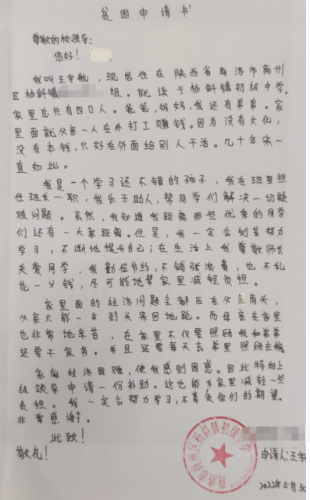 贫困申请书
尊敬的校领导:
您好!
我叫王宇航,现居住在陕西省商洛市商州
区杨斜镇 组。就读于杨斜镇初级中学。
家里总共有四口人。爸爸,妈妈,我还有弟弟。家
里面就父亲一人在外打工赚钱。因为没有文化,
没有本钱,只好在外面给别人干活。几十年来一
直如此。
我是一个学习还不错的孩子,我在班里担
任班长一职,我乐于助人,帮同学们解决一切疑
难问题。虽然,我知道我距离那些优秀的同学
们还有一大家距离。但是,我一定会刻苦努力
学习,不断地提升自己;在生活上我尊敬师长
关爱同学,我勤俭节约,不铺张浪费,也不乱
花一分钱,尽可能地帮家里减轻负担。
家里面的经济问题全都压在父亲肩头,
父亲只能一 到头来回地跑。而母亲在家里
也非常地辛苦,在家里不仅要照顾我和弟弟
还要干家务。并且还要每天去 里照顾
家庭经济困难,使我感到困惑。因此特向上
级领导申请一份补助。这也能为家里减轻一些
负担。我一定会努力学习,不辜负你们的期望。
非常感谢。
此致!
敬礼!
申请人:王宇
2022年5月30